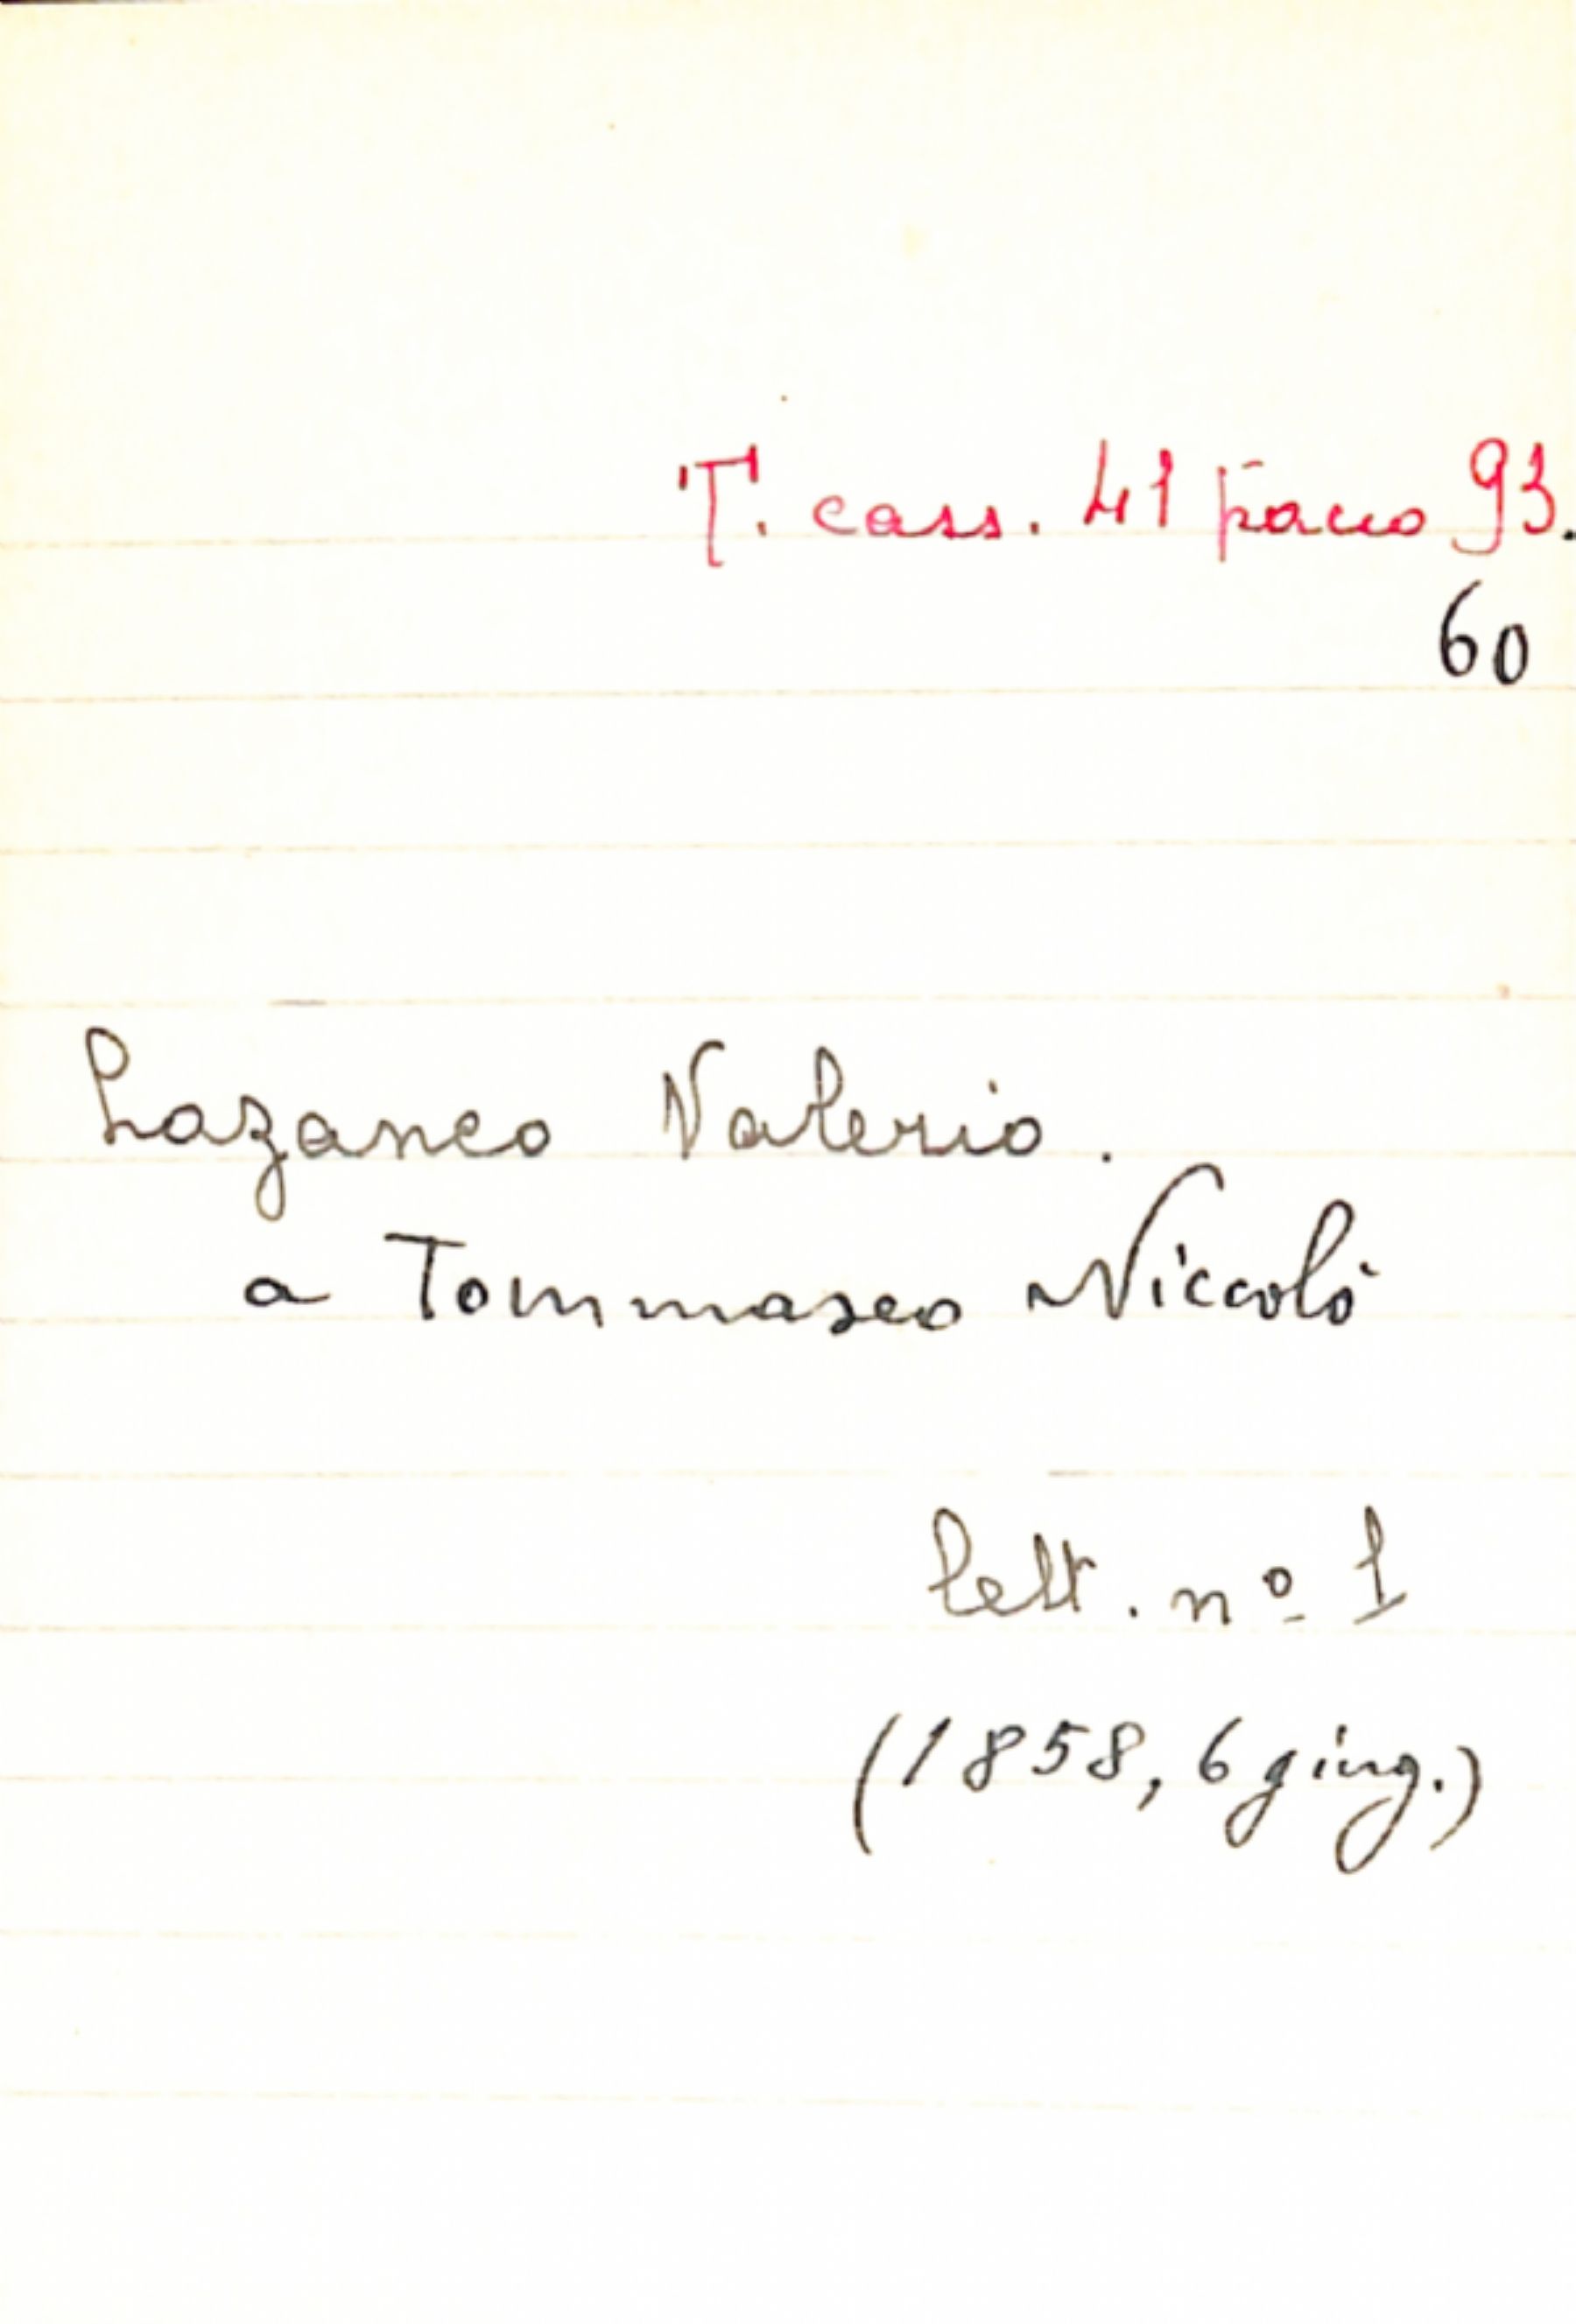 T. cass. 41 pacco 93.
60
Lazaneo Valerio.
a Tommaseo Niccolò
lett. nº 1
(1858, 6 giug.)